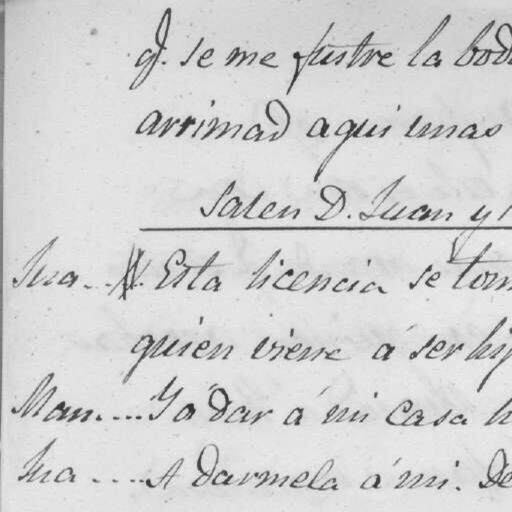 q.e se me fustre la bod
arrimad aqui unas
Salen D. Juan y
Jua... Esta licencia se tom
quien viene á ser hij
Man.... Y á dar á mi casa h
Jua..... A darmela á mi. De